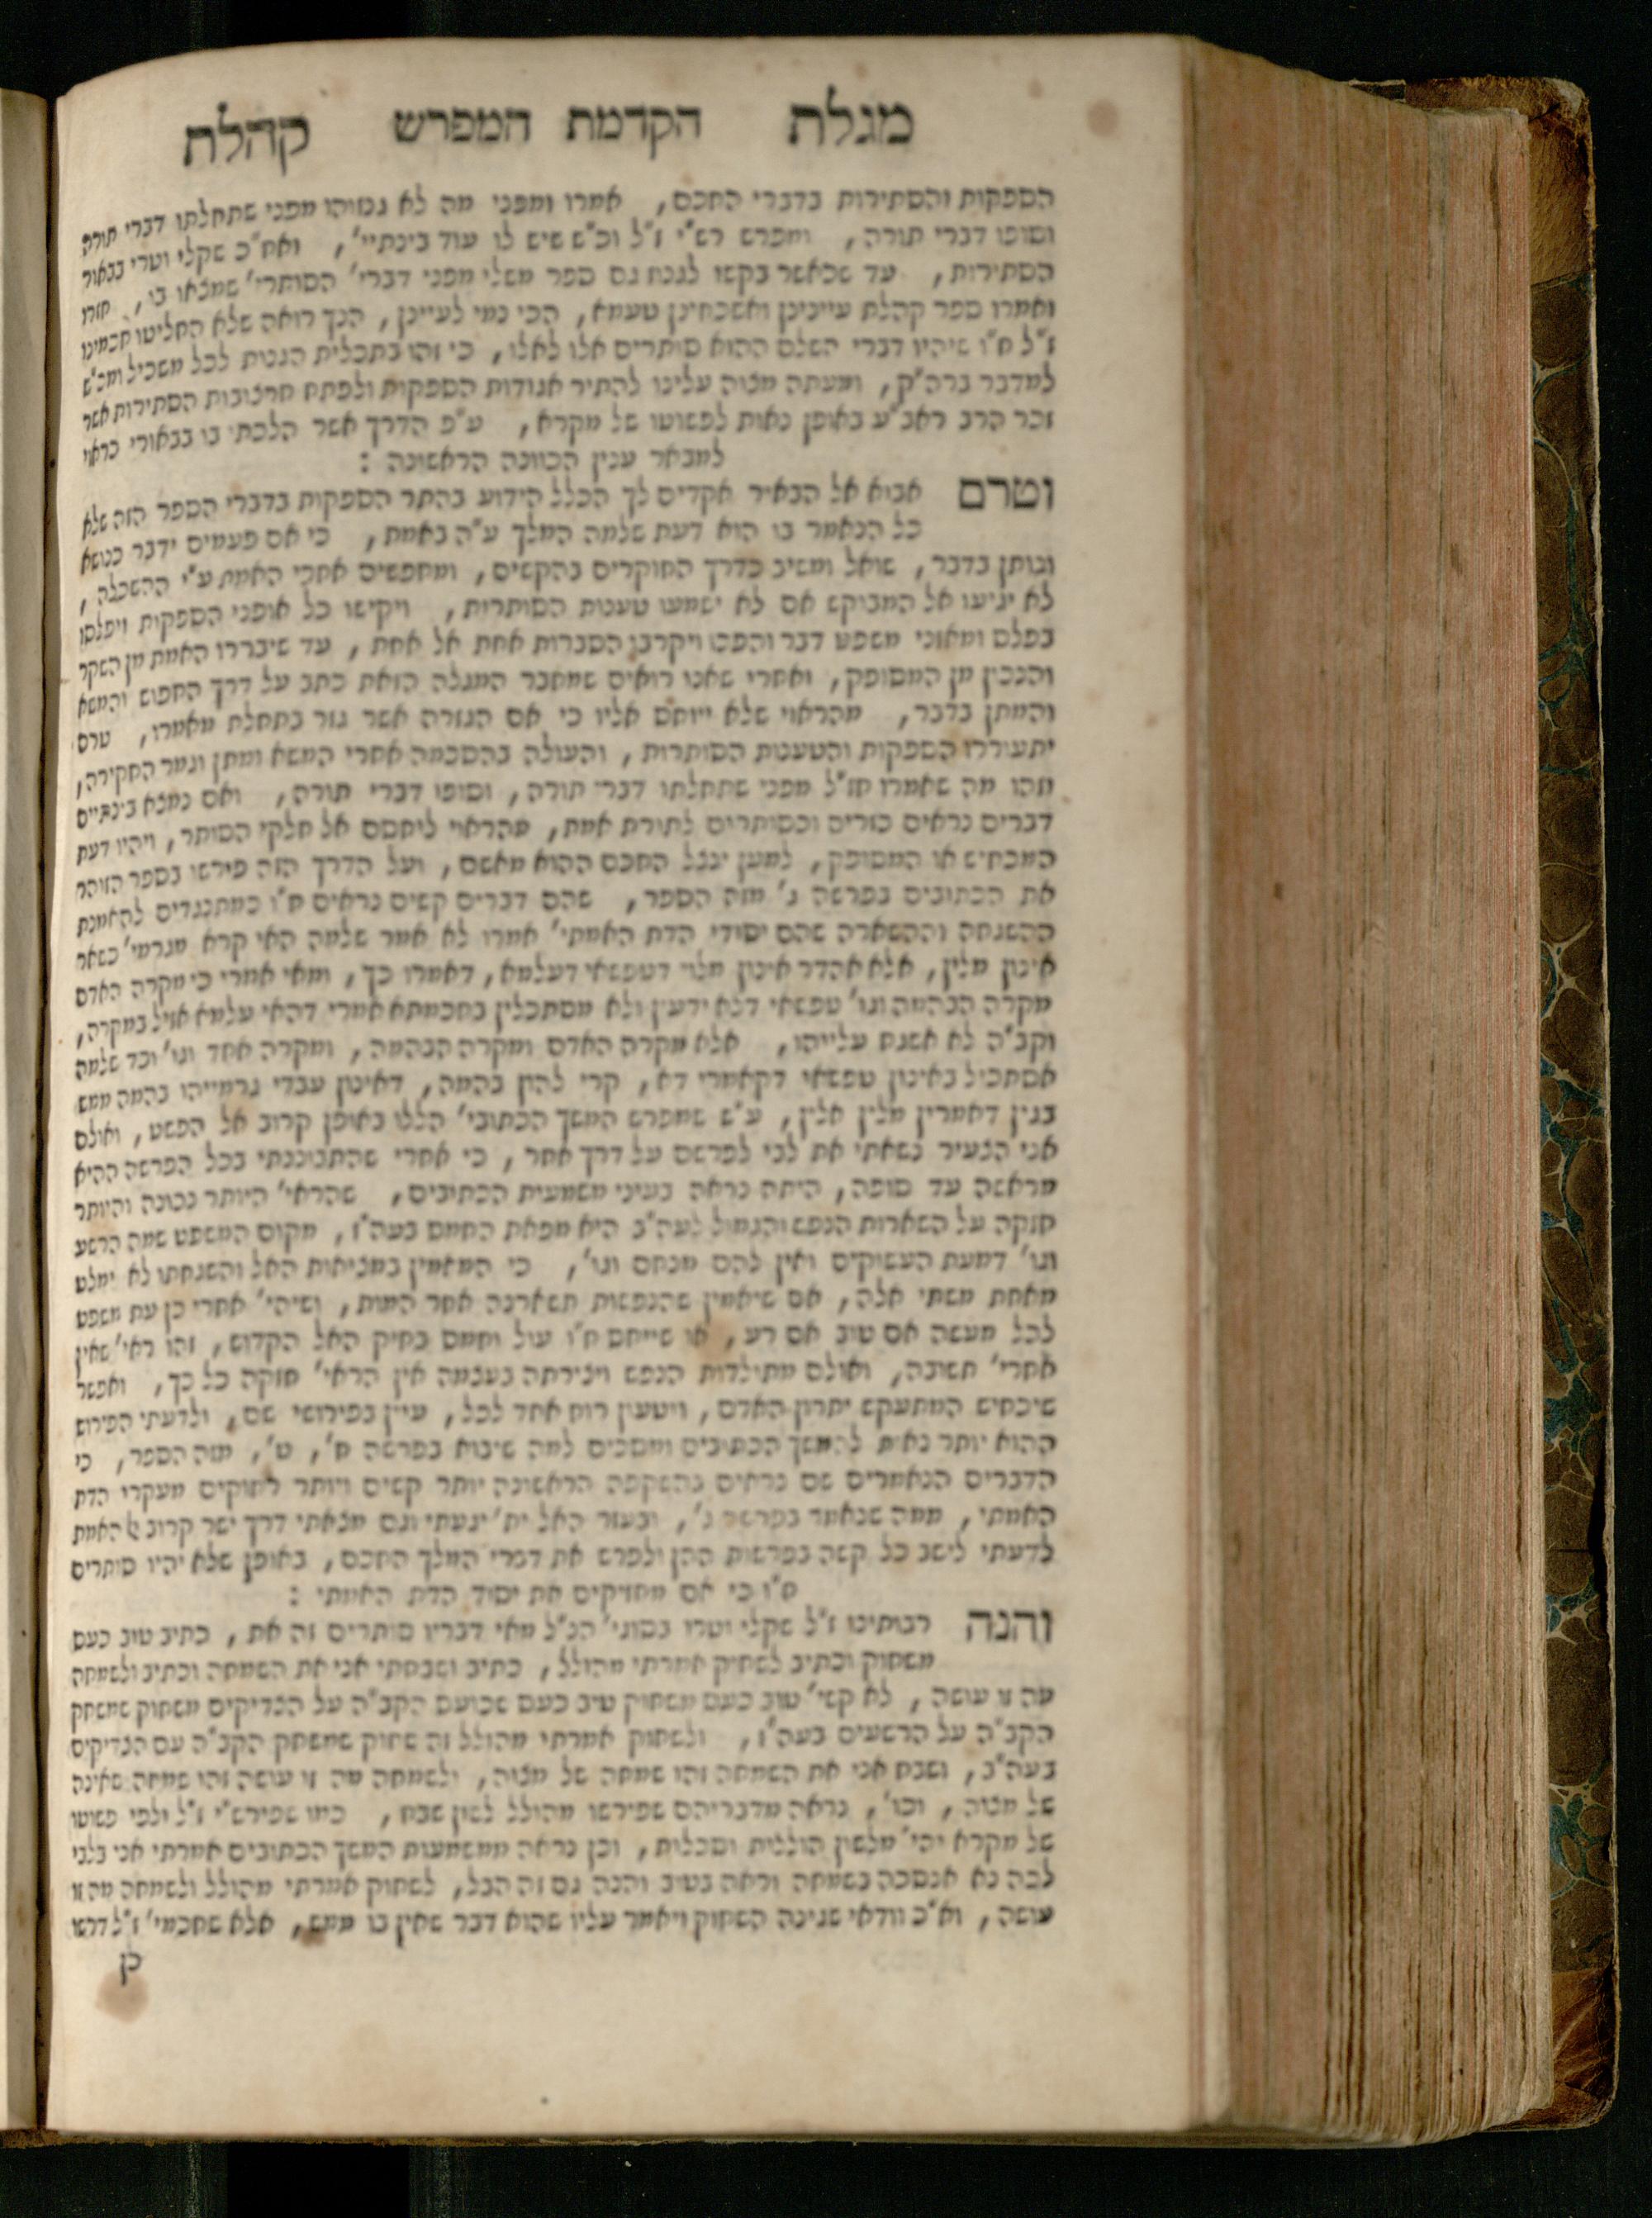 מגלת הקדמת המפרש קהלת
הספקות והסתירות בדברי החכם, אמרו ומפני מה לא גנזוהו מפני שתחלתו דברי תורה
וסופו דברי תורה, ומפרש רש"י ז"ל וכ"ש שיש לו עוד בינתיי', ואח"כ שקלי וטרי בבאור
הסתירות, עד שכאשר בקשו לגנוז גם ספר משלי מפני דברי' הסותרי' שמצאו בו, חזרו
ואמרו ספר קהלת עיינינן ואשכחינן טעמא, הכי נמי לעיינן, הנך רואה שלא החליטו חכמינו
ז"ל ח"ו שיהיו דברי השלם ההוא סותרים אלו לאלו, כי זהו בתכלית הגנות לכל משכיל ומכ"ש
למדבר ברה"ק, ומעתה מצוה עלינו להתיר אגודות הספקות ולפתח חרצובות הסתירות אשר
זכר הרב ראב"ע באופן נאות לפשוטו של מקרא, ע"פ הדרך אשר הלכתי בו בבאורי כראוי
למבאר ענין הכוונה הראשונה :
וטרם אבוא אל הבאור אקדים לך הכלל הידוע בהתר הספקות בדברי הספר הזה שלא
כל הנאמר בו הוא דעת שלמה המלך ע"ה באמת, כי אם פעמים ידבר כנושא
ונותן בדבר, שואל ומשיב כדרך החוקרים בהקשים, ומחפשים אחרי האמת ע"י ההשכלה,
לא יגיעו אל המבוקש אם לא ישמעו טענות הסותרות, ויקישו כל אופני הספקות ויפלסו
בפלס ומאזני משפט דבר והפכו ויקרבן הסברות אחת אל אחת, עד שיבררו האמת מן השקר
והנכון מן המסופק, ואחרי שאנו רואים שמחבר המגלה הזאת כתב על דרך החפוש והמשא
והמתן בדבר, מהראוי שלא ייוחס אליו כי אם הגזרה אשר גזר בתחלת מאמרו, טרם
יתעוררו הספקות והטענות הסותרות, והעולה בהסכמה אחרי המשא ומתן וגמר החקירה,
וזהו מה שאמרו חז"ל מפני שתחלתו דברי תורה, וסופו דברי תורה, ואם נמצא בינתיים
דברים נראים כזרים וכסותרים לתורת אמת, מהראוי ליחסם אל חלקי הסותר, ויהיו דעת
המכחיש או המסופק, למען ינצל החכם ההוא מאשם, ועל הדרך הזה פירשו בספר הזוהר
את הכתובים בפרשה ג' מזה הספר, שהם דברים קשים נראים ח"ו כמתנגדים להאמנת
ההשגחה וההשארה שהם יסודי הדת האמתי' אמרו לא אמר שלמה האי קרא מגרמי' כשאר
אינון מלין, אלא אהדר אינון מלוי דטפשאי דעלמא, דאמרו כך, ומאי אמרי כי מקרה האדם
מקרה הבהמה וגו' טפשאי דלא ידעין ולא מסתכלין בחכמתא אמרי דהאי עלמא אזיל במקרה,
וקב"ה לא אשגח עלייהו, אלא מקרה האדם ומקרה הבהמה, ומקרה אחד וגו' וכד שלמה
אסתכיל באינון טפשאי דקאמרי דא, קרי להון בהמה, דאינון עבדי גרמייהו בהמה ממש
בגין דאמרין מלין אלין, ע"ש שמפרש המשך הכתובי' הללו באופן קרוב אל הפשט, ואולם
אני הצעיר נשאתי את לבי לפרשם על דרך אחר, כי אחרי שהתבוננתי בכל הפרשה ההיא
מראשה עד סופה, היתה נראה בעיני משמעית הכתובים, שהראי' היותר נכונה והיותר
חזקה על השארות הנפש והגמול לעה"ב היא מפאת החמס בעה"ז, מקום המשפט שמה הרשע
וגו' דמעת העשוקים ואין להם מנחם וגו', כי המאמין במציאות האל והשגחתו לא ימלט
מאחת משתי אלה, אם שיאמין שהנפשות תשארנה אחר המות, ושיהי' אחרי כן עת משפט
לכל מעשה אם טוב אם רע, או שייחס ח"ו עול וחמס בחיק האל הקדוש, זהו ראי' שאין
אחרי' תשובה, ואולם מתולדות הנפש ויצירתה בעצמה אין הראי' חזקה כל כך, ואפשר
שיכחיש המתעקש יתרון האדם, ויטעון רוח אחד לכל, עיין בפירושי שם, ולדעתי הפירוש
ההוא יותר נאות להמשך הכתובים ומסכים למה שיבוא בפרשה ח', ט', מזה הספר, כי
הדברים הנאמרים שם נראים בהשקפה הראשונה יותר קשים ויותר רחוקים מעקרי הדת
האמתי, ממה שנאמר בפרשה ג', ובעזר האל ית' יגעתי וגם מצאתי דרך ישר קרוב אל האמת
לדעתי לישב כל קשה בפרשות ההן ולפרש את דברי המלך החכם, באופן שלא יהיו סותרים
ח"ו כי אם מחזיקים את יסוד הדת האמתי :
והנה רבותינו ז"ל שקלי וטרו בסוגי' הנ"ל מאי דבריו סותרים זה את, כתיב טוב כעס
משחוק וכתיב לשחוק אמרתי מהולל, כתיב ושבחתי אני את השמחה וכתיב ולשמחה
מה זו עושה, לא קשי' טוב כעס משחוק טוב כעס שכועס הקב"ה על הצדיקים משחוק שמשחק
הקב"ה על הרשעים בעה"ז, ולשחוק אמרתי מהולל זה שחוק שמשחק הקב"ה עם הצדיקים
בעה"ב, ושבח אני את השמחה זהו שמחה של מצוה, ולשמחה מה זו עושה זהו שמחה שאינה
של מצוה, וכו', נראה מדבריהם שפירשו מהולל לשון שבח, כמו שפירש"י ז"ל ולפי פשוטו
של מקרא יהי' מלשון הוללות וסכלות, וכן נראה ממשמעות המשך הכתובים אמרתי אני בלבי
לכה נא אנסכה בשמחה וראה בטוב והנה גם זה הבל, לשחוק אמרתי מהולל ולשמחה מה זו
עושה, וא"כ וודאי שגינה השחוק ויאמר עליו שהוא דבר שאין בו ממש, אלא שחכמי' ז"ל דרשו
כן